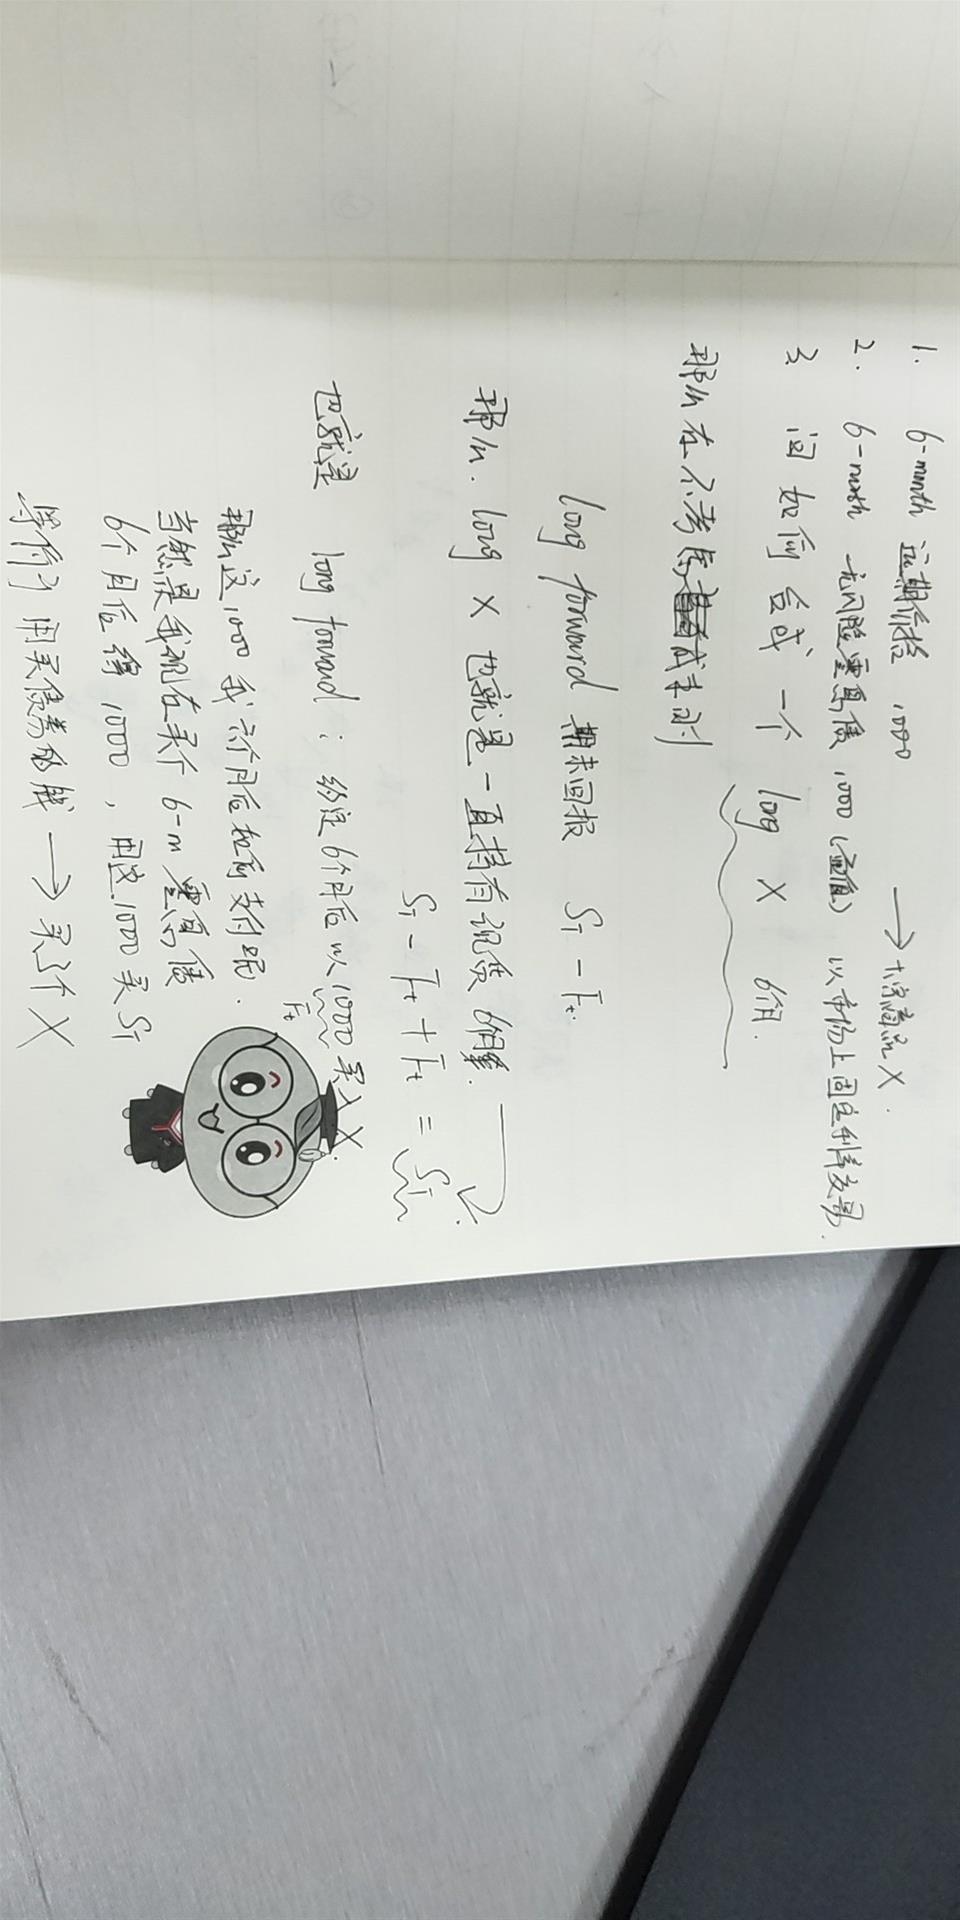 1. 6-month 远期价格 1000 → 大宗商品 X.
2. 6-month 无风险零息债 1000（面值），以市场上固定利率交易.
3 问如何合成一个 long X 6个月.
那么在不考虑成本时
long forward 期末回报 S_T - F_t.
那么. long X 也就是一直持有现货 6个月.
S_T - F_t + F_t = S_T
也就是 long forward : 约定6个月后以 1000 买 X.
F_t
那么这 1000 我六个月后如何支付呢.
当然是我现在买个 6-m 零息债
6个月后得 1000 , 用这 1000 买 S_T
等价于用买债券的钱 → 买个 X